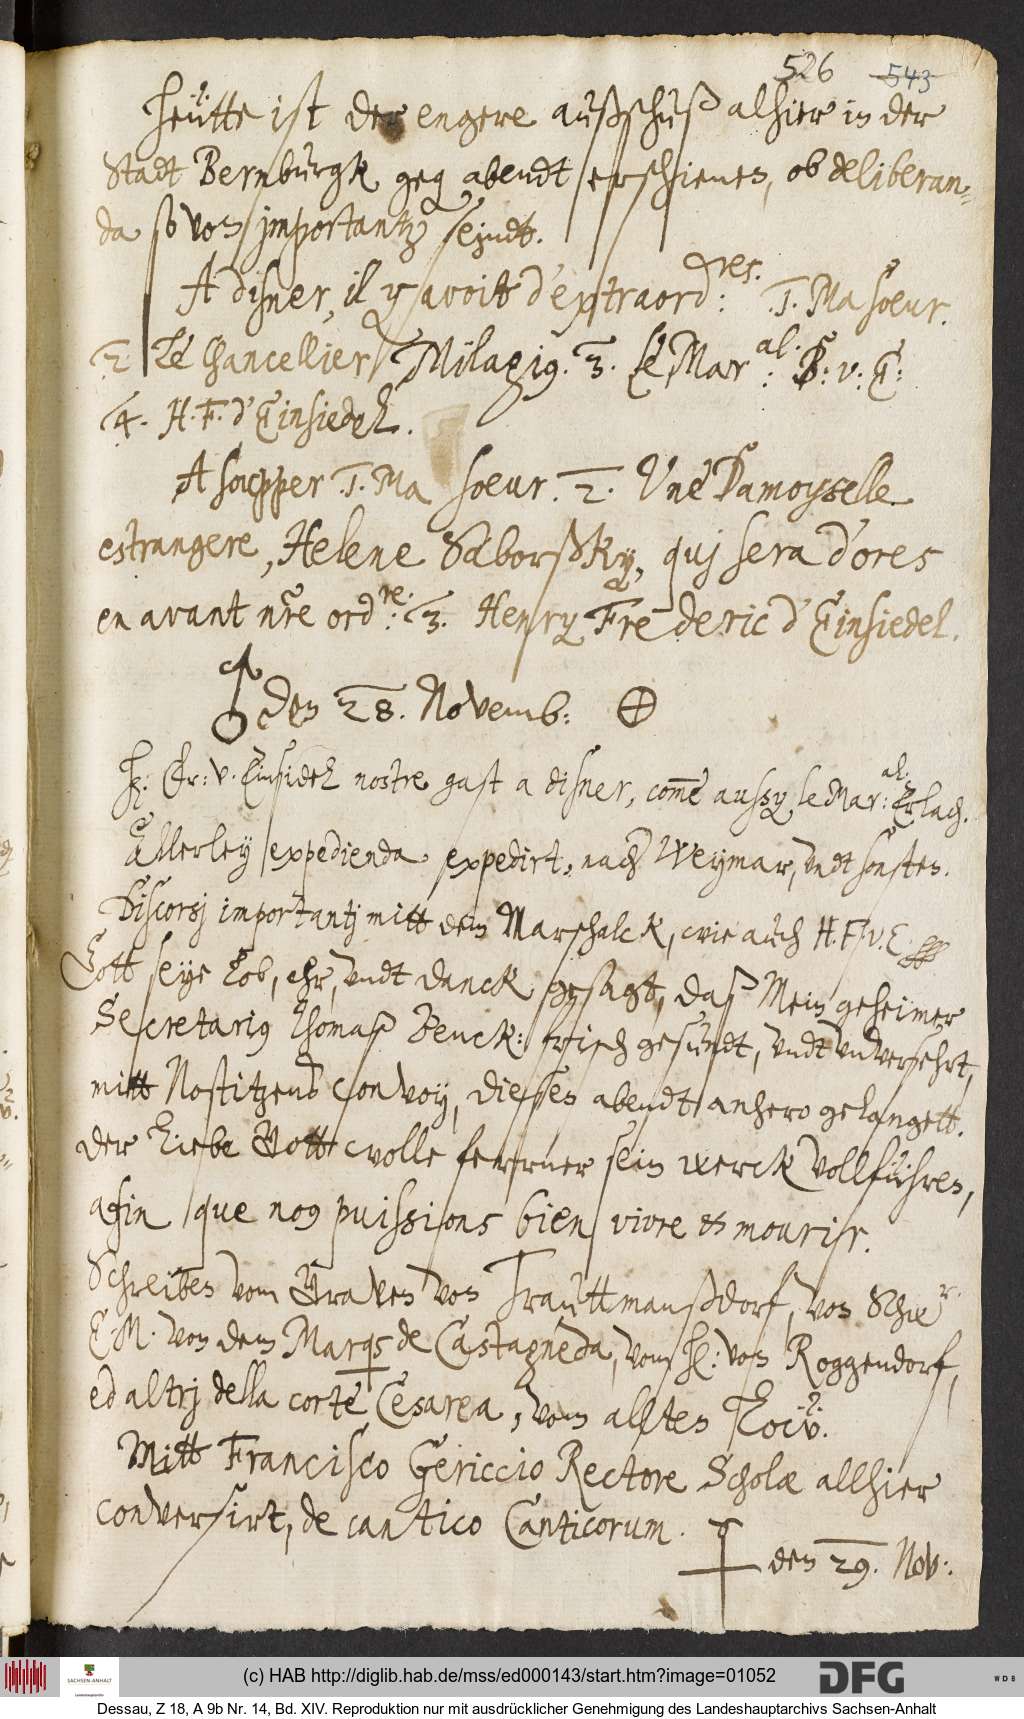 526 543
Heütte ist der engere außschuß alhier in der
Stadt Bernburgk geg abendt erschienen, ob deliberan-
da so von importantz seindt.
A disner, il y avoit d'extraord: res. .1. Ma soeur.
2. Le Chancellier Milagi9. 3. Le Mar: al. B: v: E:
4. H. F. d'Einsiedel.
A soupper .1. Ma soeur. 2. Une Damoyselle
estrangere, Helene Saborßky, quj sera d'ores
en avant nre ord: re. 3. Henry Frederic d'Einsiedel.
♂ den 28. Novemb: ⊕
H: Fr: v. Einsidel nostre gast a disner, come aussy le Mar: al. Erlach.
Allerley expedienda expedirt, nach Weymar, undt sonsten.
Discorsj importantj mitt dem Marschalck, wie auch H. F. v. E.
Gott seye Lob, ehr, undt danck gesagt, daß Mein geheimer
Secretari9 Thomaß Benck: frisch gesundt, undt unversehrt,
mitt Nostitzens convoy, diesen abendt anhero gelangett.
der Liebe Gott wolle ferrner sein werck vollführen,
afin que no9 puissions bien vivre et mourir.
Schreiben vom Graven von Trauttmanßdorf, von Schw r.
E. M. von dem Marqs de Castagneda, vom H: von Roggendorf,
ed altrj della corte Cesarea, vom alten
Mitt Francisco Gericcio Rectore Scholæ allhier
conversirt, de cantico Canticorum.
den 29. Nov:
(c) HAB http://diglib.hab.de/mss/ed000143/start.htm?image=01052
SACHSEN-ANHALT
DFG
WDB
Dessau, Z 18, A 9b Nr. 14, Bd. XIV. Reproduktion nur mit ausdrücklicher Genehmigung des Landeshauptarchivs Sachsen-Anhalt